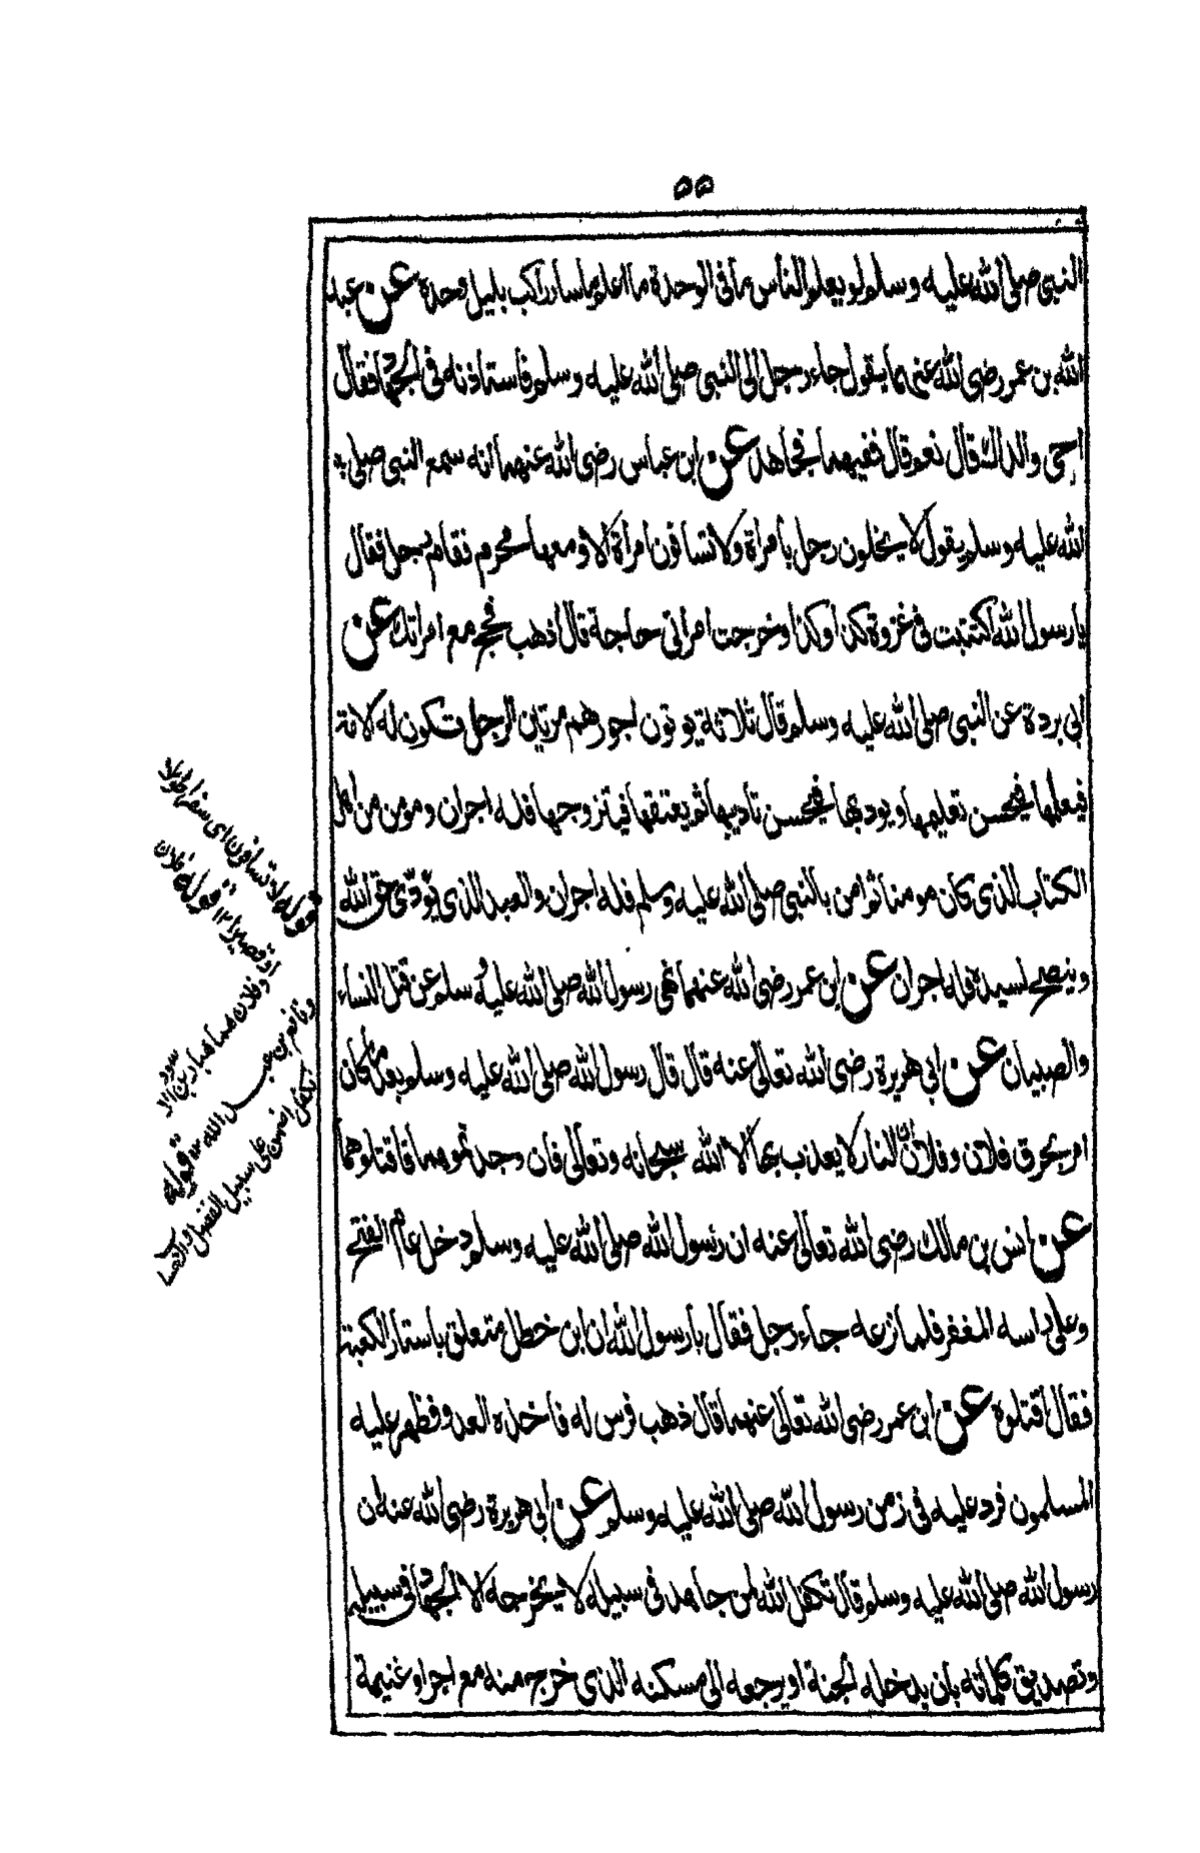 ٥٥
النبي صلى الله عليه وسلم لو يعلم الناس ما في الوحدة ما اعلم ما سار راكب بليل وحدة عن عبد
الله بن عمر رضي الله عنهما يقول جاء رجل الى النبي صلى الله عليه وسلم فاستاذنه في الجهاد فقال
احي والداك قال نعم قال ففيهما فجاهد عن ابن عباس رضي الله عنهما انه سمع النبي صلى
الله عليه وسلم يقول لا يخلون رجل بامراة ولا تسافرن امراة الا ومعها محرم فقام رجل فقال
يا رسول الله اكتتبت في غزوة كذا وكذا وخرجت امراتي حاجة قال اذهب فحج مع امراتك عن
ابي بردة عن النبي صلى الله عليه وسلم قال ثلاثة يوتون اجورهم مرتين الرجل تكون له الامة
فيعلمها فيحسن تعليمها ويودبها فيحسن تاديبها ثم يعتقها فيتزوجها فله اجران ومومن من اهل
الكتاب الذي كان مومنا ثم امن بالنبي صلى الله عليه وسلم فله اجران والعبد الذي يؤدي حق الله
وينصح لسيده فله اجران عن ابن عمر رضي الله عنهما نهى رسول الله صلى الله عليه وسلم عن قتل النساء
والصبيان عن ابي هريرة رضي الله تعالى عنه قال قال رسول الله صلى الله عليه وسلم بعد ما كان
امر بحرق فلان وفلان ان النار لا يعذب بها الا الله سبحانه وتعالى فان وجدتموهما فاقتلوهما
عن انس بن مالك رضي الله تعالى عنه ان رسول الله صلى الله عليه وسلم دخل عام الفتح
وعلى راسه المغفر فلما نزعه جاء رجل فقال يا رسول الله ان ابن خطل متعلق باستار الكعبة
فقال اقتلوه عن ابن عمر رضي الله تعالى عنهما قال ذهب فرس له فاخذه العدو فظهر عليه
المسلمون فرد عليه في زمن رسول الله صلى الله عليه وسلم عن ابي هريرة رضي الله عنه ان
رسول الله صلى الله عليه وسلم قال تكفل الله لمن جاهد في سبيله لا يخرجه الا الجهاد في سبيله
وتصديق كلماته بان يدخله الجنة او يرجعه الى مسكنه الذي خرج منه مع اجر او غنيمة
قوله لا تسافرن اي سفرا طويلا
او قصيرا ١٢ قوله فلان
وفلان هما هبار بن الاسود
ونافع بن عبد الله ١٢ قوله
تكفل اي ضمن على سبيل الفضل